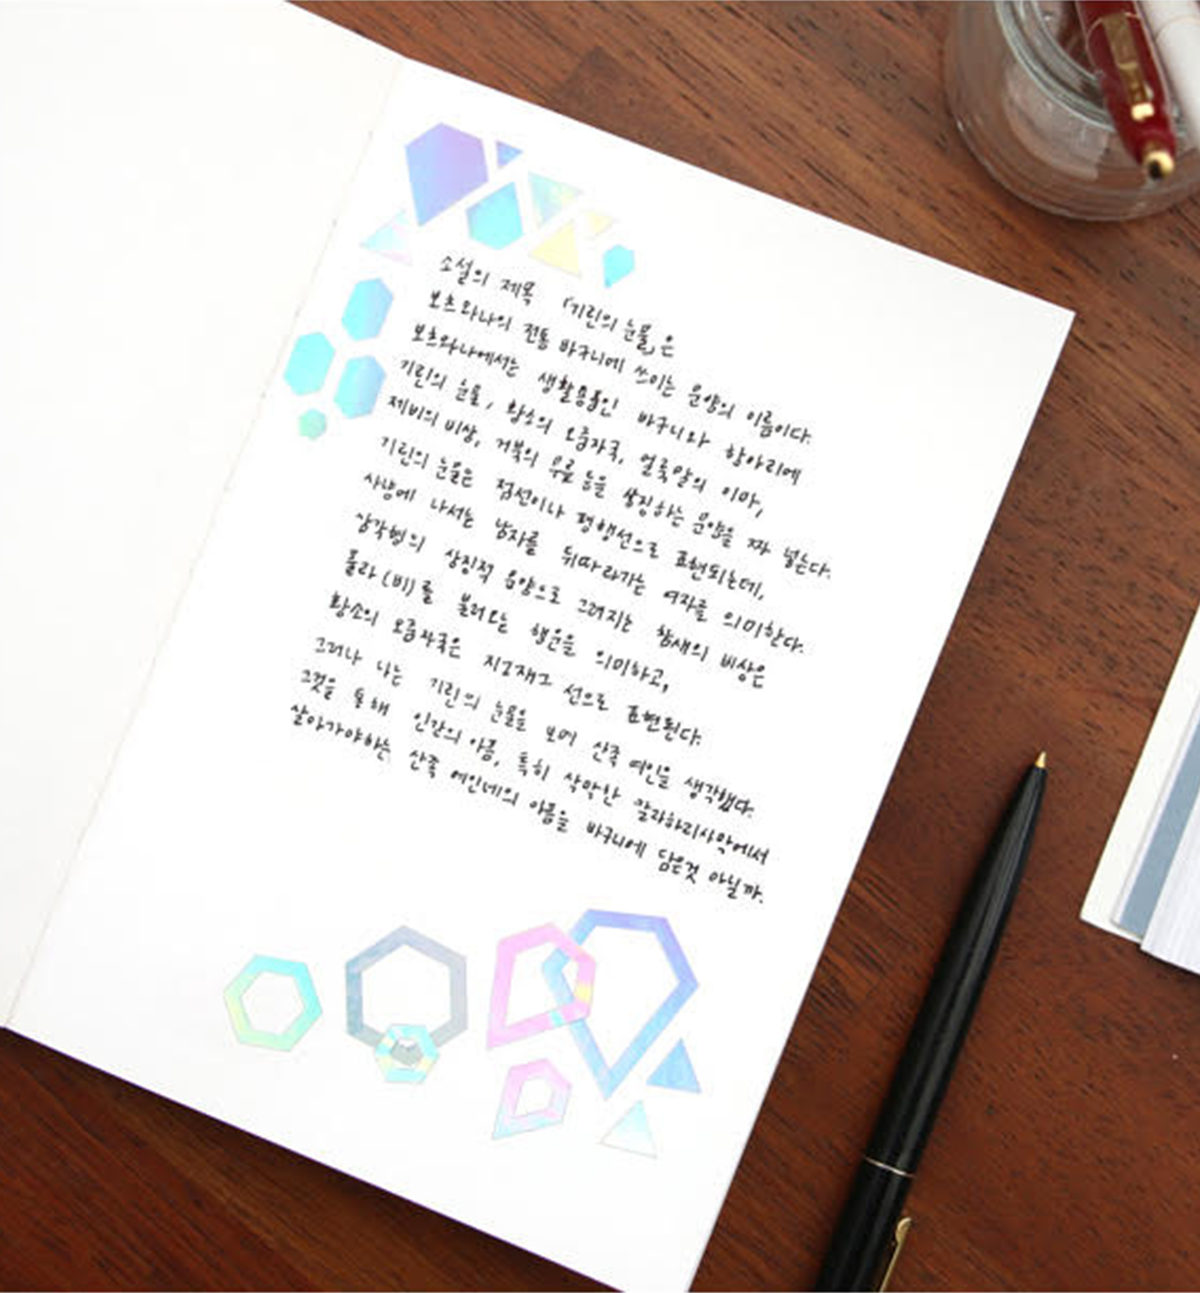 소설의 제목 「기린의 눈물」은
보츠와나의 전통 바구니에 쓰이는 문양의 이름이다.
보츠와나에서는 생활용품인 바구니와 항아리에
기린의 눈물, 황소의 오줌자국, 얼룩말의 이마,
제비의 비상, 거북의 무릎 등을 상징하는 문양을 짜 넣는다.
기린의 눈물은 점선이나 평행선으로 표현되는데,
사냥에 나서는 남자를 뒤따라가는 여자를 의미한다.
삼각형의 상징적 문양으로 그려지는 참새의 비상은
풀라(비)를 불러오는 행운을 의미하고,
황소의 오줌자국은 지그재그 선으로 표현된다.
그러나 나는 기린의 눈물을 보며 산족 여인을 생각했다.
그것을 통해 인간의 아픔, 특히 삭막한 칼라하리사막에서
살아가야하는 산족 여인네의 아픔을 바구니에 담은것 아닐까.